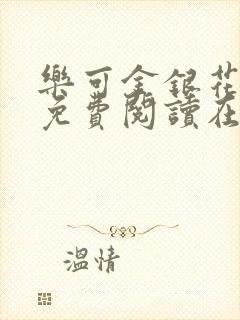 樂可金銀花
免費閱讀在
溫情